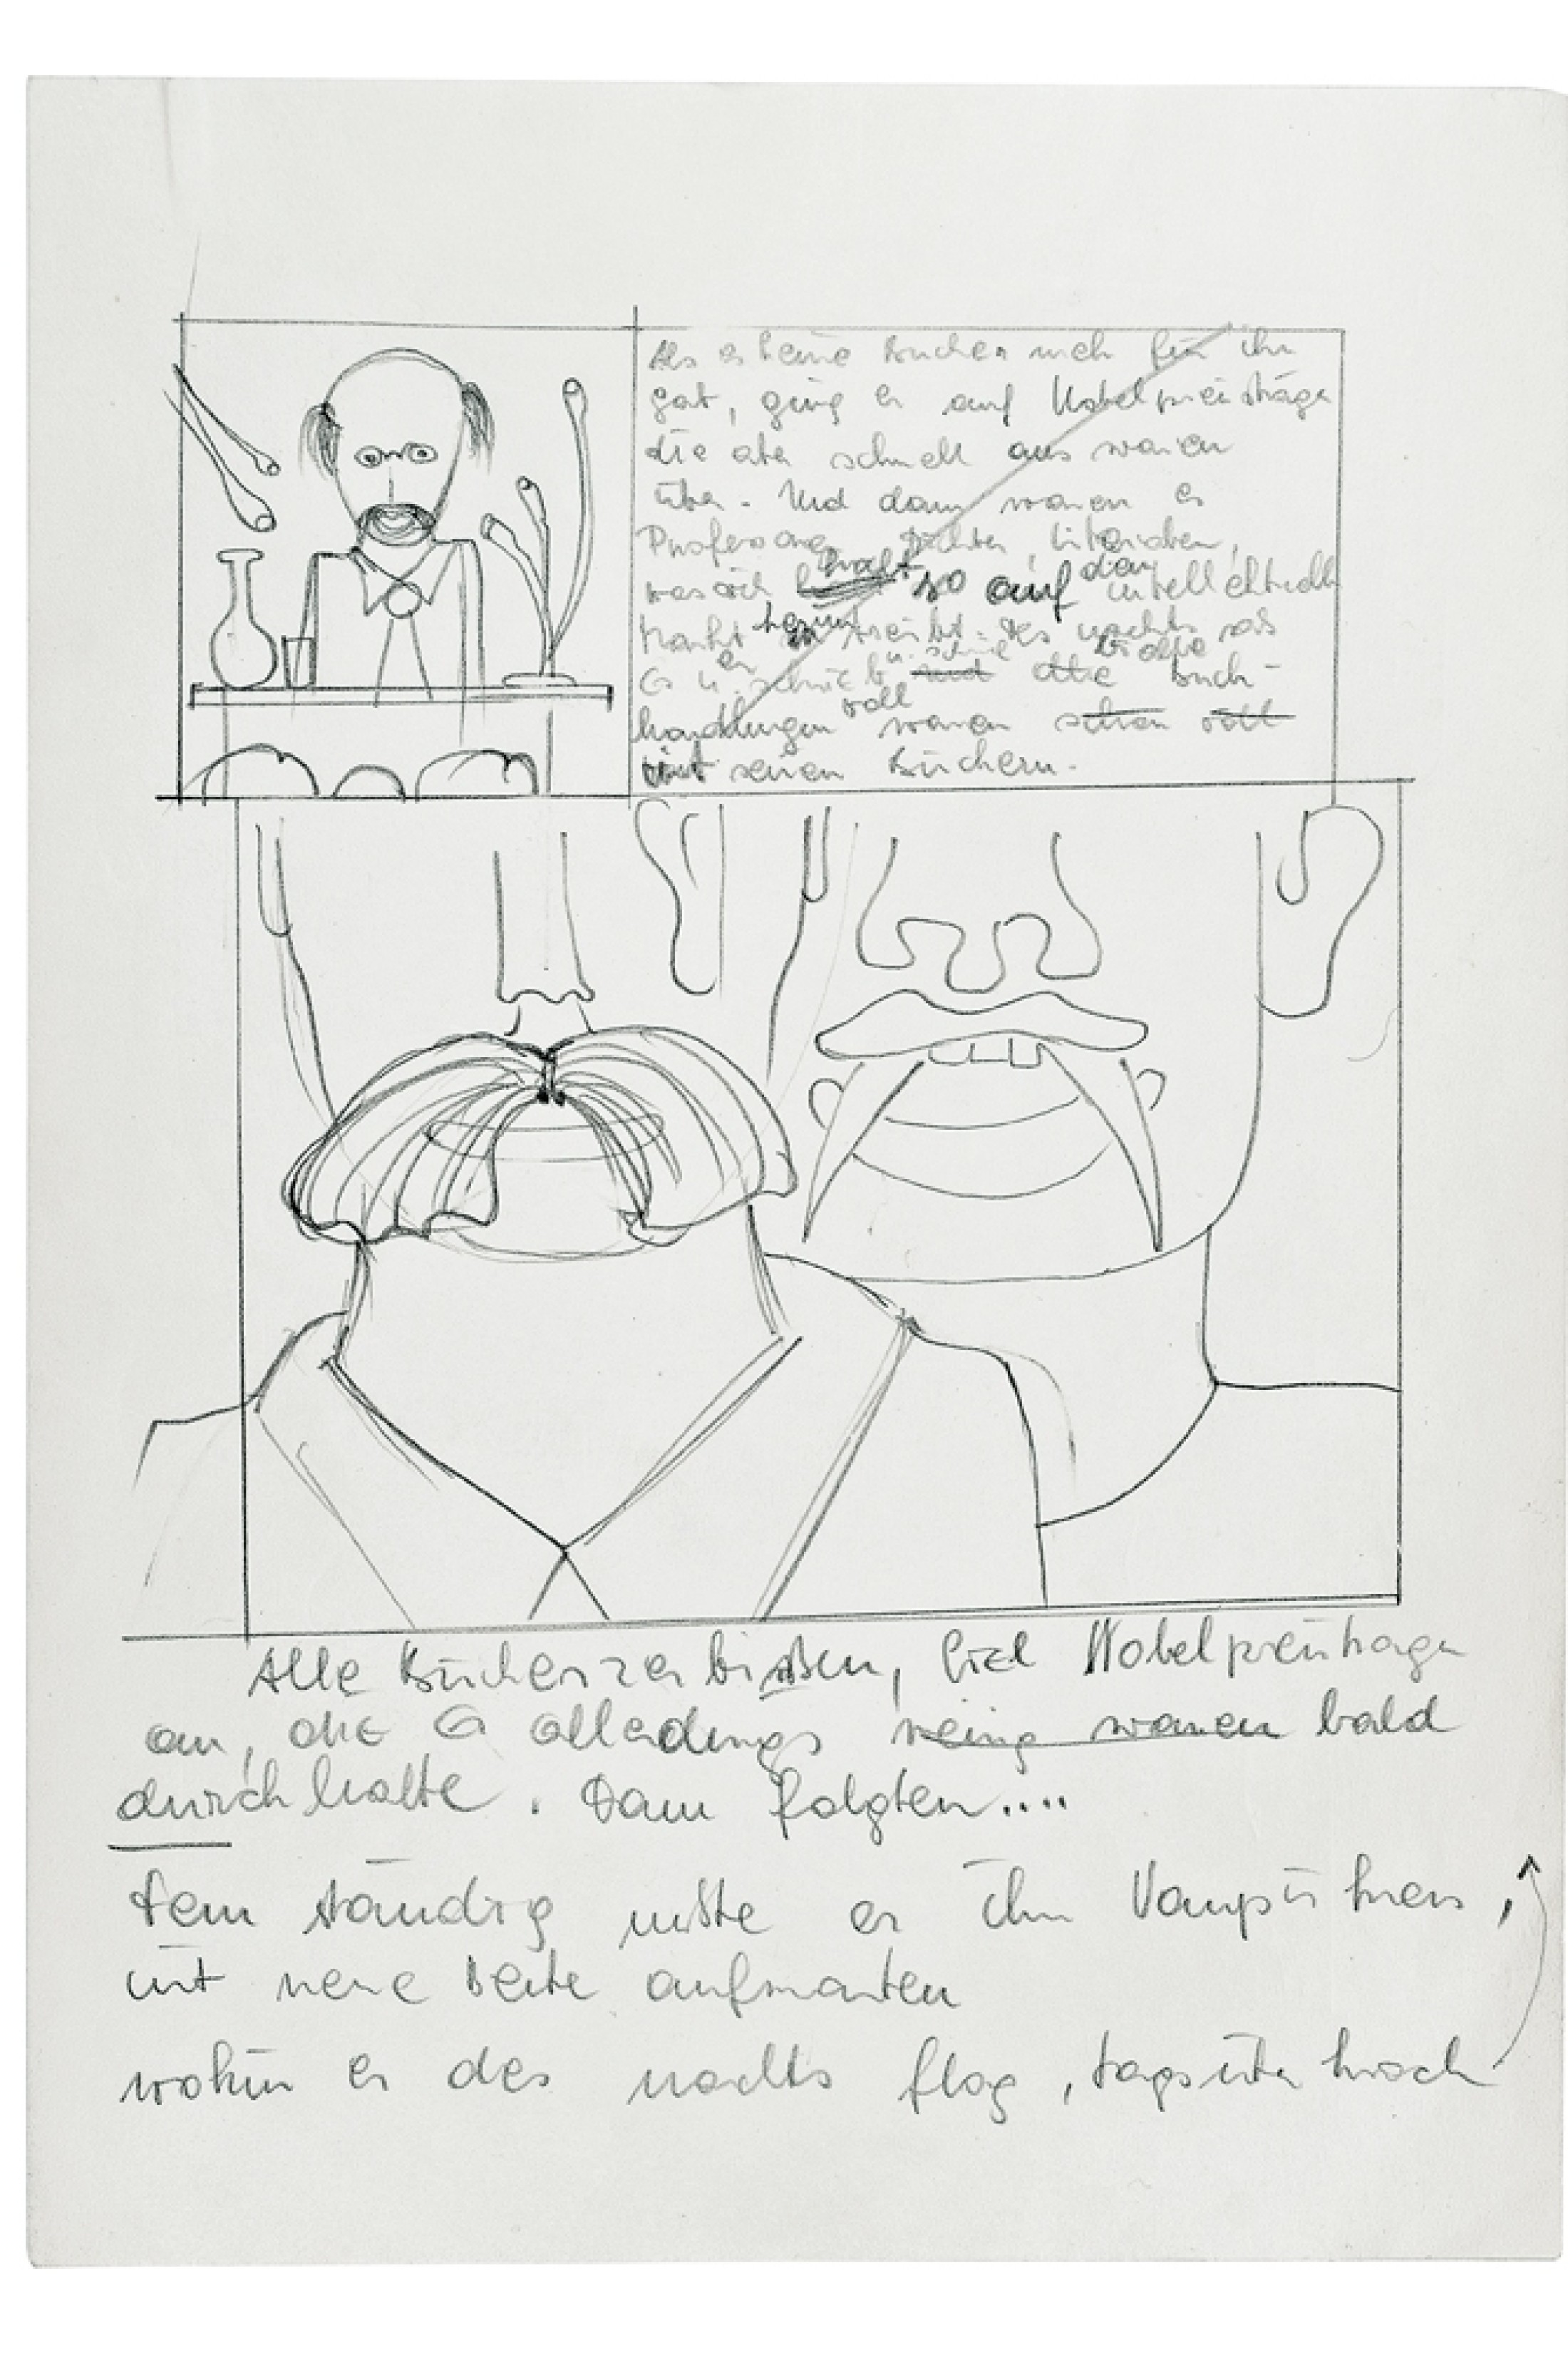 Als es keine Bücher mehr für ihn
gab, ging er auf Nobelpreisträger
die aber schnell aus waren
über. Und dann waren es
Professoren, Dichter, Literaten,
was sich kraft so auf dem intellektuellen
Markt herum treibt. Des nachts sass
er u. schrieb u. schrieb und alle Buch-
handlungen voll waren schon voll
mit seinen Büchern.
Alle Bücher zerbissen, fiel Nobelpreisträger
an, die er allerdings wenig waren bald
durch hatte. Dann folgten....
Denn ständig mußte er ihn Vampirkreis,
mit neue Beute aufwarten
wohin er des nachts flog, tagsüber hoch